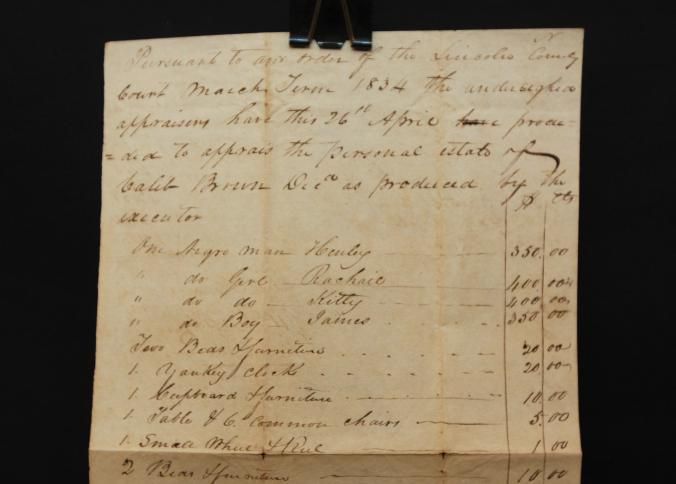 Pursuant to an order of the Lincoln County
Court March Term 1834 the undersigned
appraisers have this 26th April have procee=
=ded to apprais the personal estate of
Calib Brown Decd as produced by the
executor $ cts
One Negro man Henley 350.00
" do Girl Rachael 400 00
" do do Kitty 400 00
" do Boy James 350 00
Two Beds & furniture 20 00
1. Yankey clock 20 00
1. Cupboard & furniture 10.00
1 Table & 6. common chairs 5.00
1. Small Wheel & Reel 1 00
2 Beds & furniture 10 00